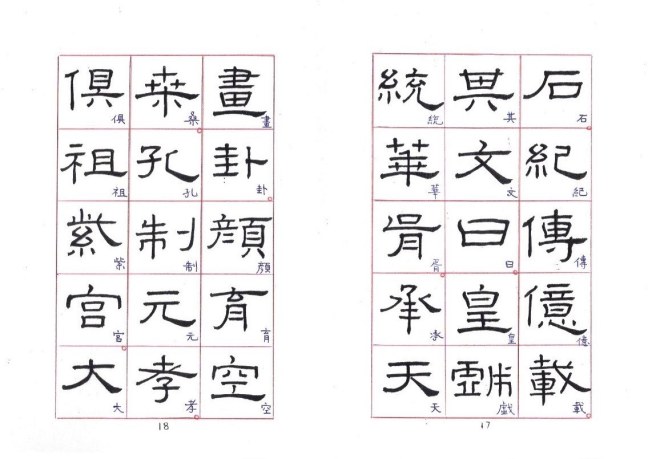 石紀傳億載
石紀傳億載
其文曰皇戲
其文曰皇戲
統華胥承天
統華胥承天
17
畫卦顏育空
畫卦顏育空
桑孔制元孝
桑孔制元孝
俱祖紫宮大
俱祖紫宮大
18